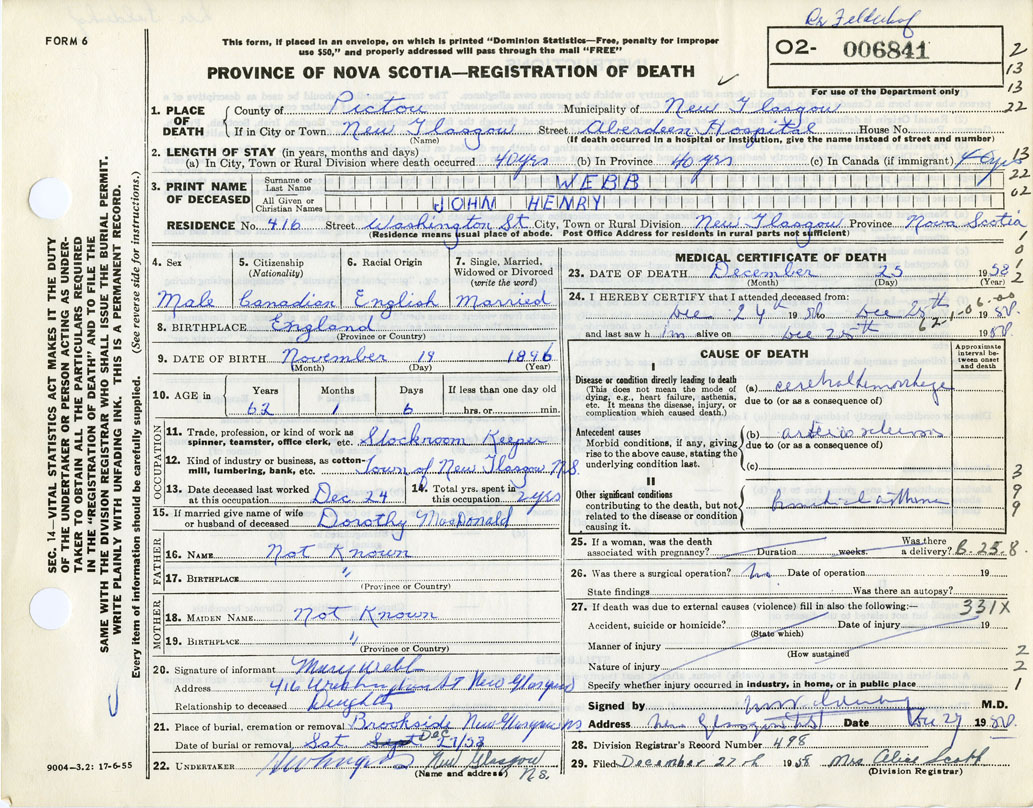 Dr Felderhof
FORM 6
This form, if placed in an envelope, on which is printed "Dominion Statistics—Free, penalty for improper
use $50," and properly addressed will pass through the mail "FREE"
O2- 006841
For use of the Department only
PROVINCE OF NOVA SCOTIA—REGISTRATION OF DEATH
1. PLACE OF DEATH
County of Pictou Municipality of New Glasgow
If in City or Town New Glasgow Street Aberdeen Hospital House No.
(Name) (If death occurred in a hospital or Institution, give the name instead of street and number)
2. LENGTH OF STAY (in years, months and days)
(a) In City, Town or Rural Division where death occurred 40 yrs (b) In Province 40 yrs (c) In Canada (if immigrant) 40 yrs
3. PRINT NAME OF DECEASED
Surname or Last Name WEBB
All Given or Christian Names JOHM HENRY
RESIDENCE No. 416 Street Washington St City, Town or Rural Division New Glasgow Province Nova Scotia
(Residence means usual place of abode. Post Office Address for residents in rural parts not sufficient)
4. Sex
Male
5. Citizenship
(Nationality)
Canadian
6. Racial Origin
English
7. Single, Married, Widowed or Divorced
(write the word)
Married
8. BIRTHPLACE England
(Province or Country)
9. DATE OF BIRTH November 19 1896
(Month) (Day) (Year)
10. AGE in Years Months Days If less than one day old
62 1 6 hrs. or min.
OCCUPATION
11. Trade, profession, or kind of work as
spinner, teamster, office clerk, etc. Stockroom Keeper
12. Kind of industry or business, as cotton-
mill, lumbering, bank, etc. Town of New Glasgow N.S.
13. Date deceased last worked
at this occupation Dec 24
14. Total yrs. spent in
this occupation 2 yrs
15. If married give name of wife
or husband of deceased Dorothy MacDonald
FATHER
16. NAME Not Known
17. BIRTHPLACE "
(Province or Country)
MOTHER
18. MAIDEN NAME Not Known
19. BIRTHPLACE "
(Province or Country)
20. Signature of informant Mary Webb
Address 416 Washington St New Glasgow
Relationship to deceased Daughter
21. Place of burial, cremation or removal Brookside New Glasgow NS
Date of burial or removal Sat Dec 27/58
22. UNDERTAKER New Glasgow N.S.
(Name and address)
MEDICAL CERTIFICATE OF DEATH
23. DATE OF DEATH December 25 1958
(Month) (Day) (Year)
24. I HEREBY CERTIFY that I attended deceased from:
Dec 24th 1958 to Dec 25th 1958
and last saw him alive on Dec 25th 1958
62-1-06-00
CAUSE OF DEATH
Approximate interval between onset and death
I
Disease or condition directly leading to death
(This does not mean the mode of
dying, e.g., heart failure, asthenia,
etc. It means the disease, injury, or
complication which caused death.)
(a) cerebral hemorrhage
due to (or as a consequence of)
Antecedent causes
Morbid conditions, if any, giving
rise to the above cause, stating the
underlying condition last.
(b) arteriosclerosis
due to (or as a consequence of)
(c)
II
Other significant conditions
contributing to the death, but not
related to the disease or condition
causing it.
bronchial asthma
25. If a woman, was the death Was there
associated with pregnancy? Duration weeks. a delivery? B-25-8
26. Was there a surgical operation? no Date of operation 19
State findings Was there an autopsy?
27. If death was due to external causes (violence) fill in also the following:— 331X
Accident, suicide or homicide? Date of injury 19
(State which)
Manner of injury
(How sustained
Nature of injury
Specify whether injury occurred in industry, in home, or in public place
Signed by M.D.
Address New Glasgow Date Dec 27 1958
28. Division Registrar's Record Number 498
29. Filed December 27th 1958 Mrs Alice Scott
(Division Registrar)
2
13
22
13
22
02
1
0
1
2
3
9
9
2
2
1
SEC. 14—VITAL STATISTICS ACT MAKES IT THE DUTY
OF THE UNDERTAKER OR PERSON ACTING AS UNDER-
TAKER TO OBTAIN ALL THE PARTICULARS REQUIRED
IN THE "REGISTRATION OF DEATH" AND TO FILE THE
SAME WITH THE DIVISION REGISTRAR WHO SHALL ISSUE THE BURIAL PERMIT.
WRITE PLAINLY WITH UNFADING INK. THIS IS A PERMANENT RECORD.
Every item of information should be carefully supplied. (See reverse side for instructions.)
9004—3.2: 17-6-55